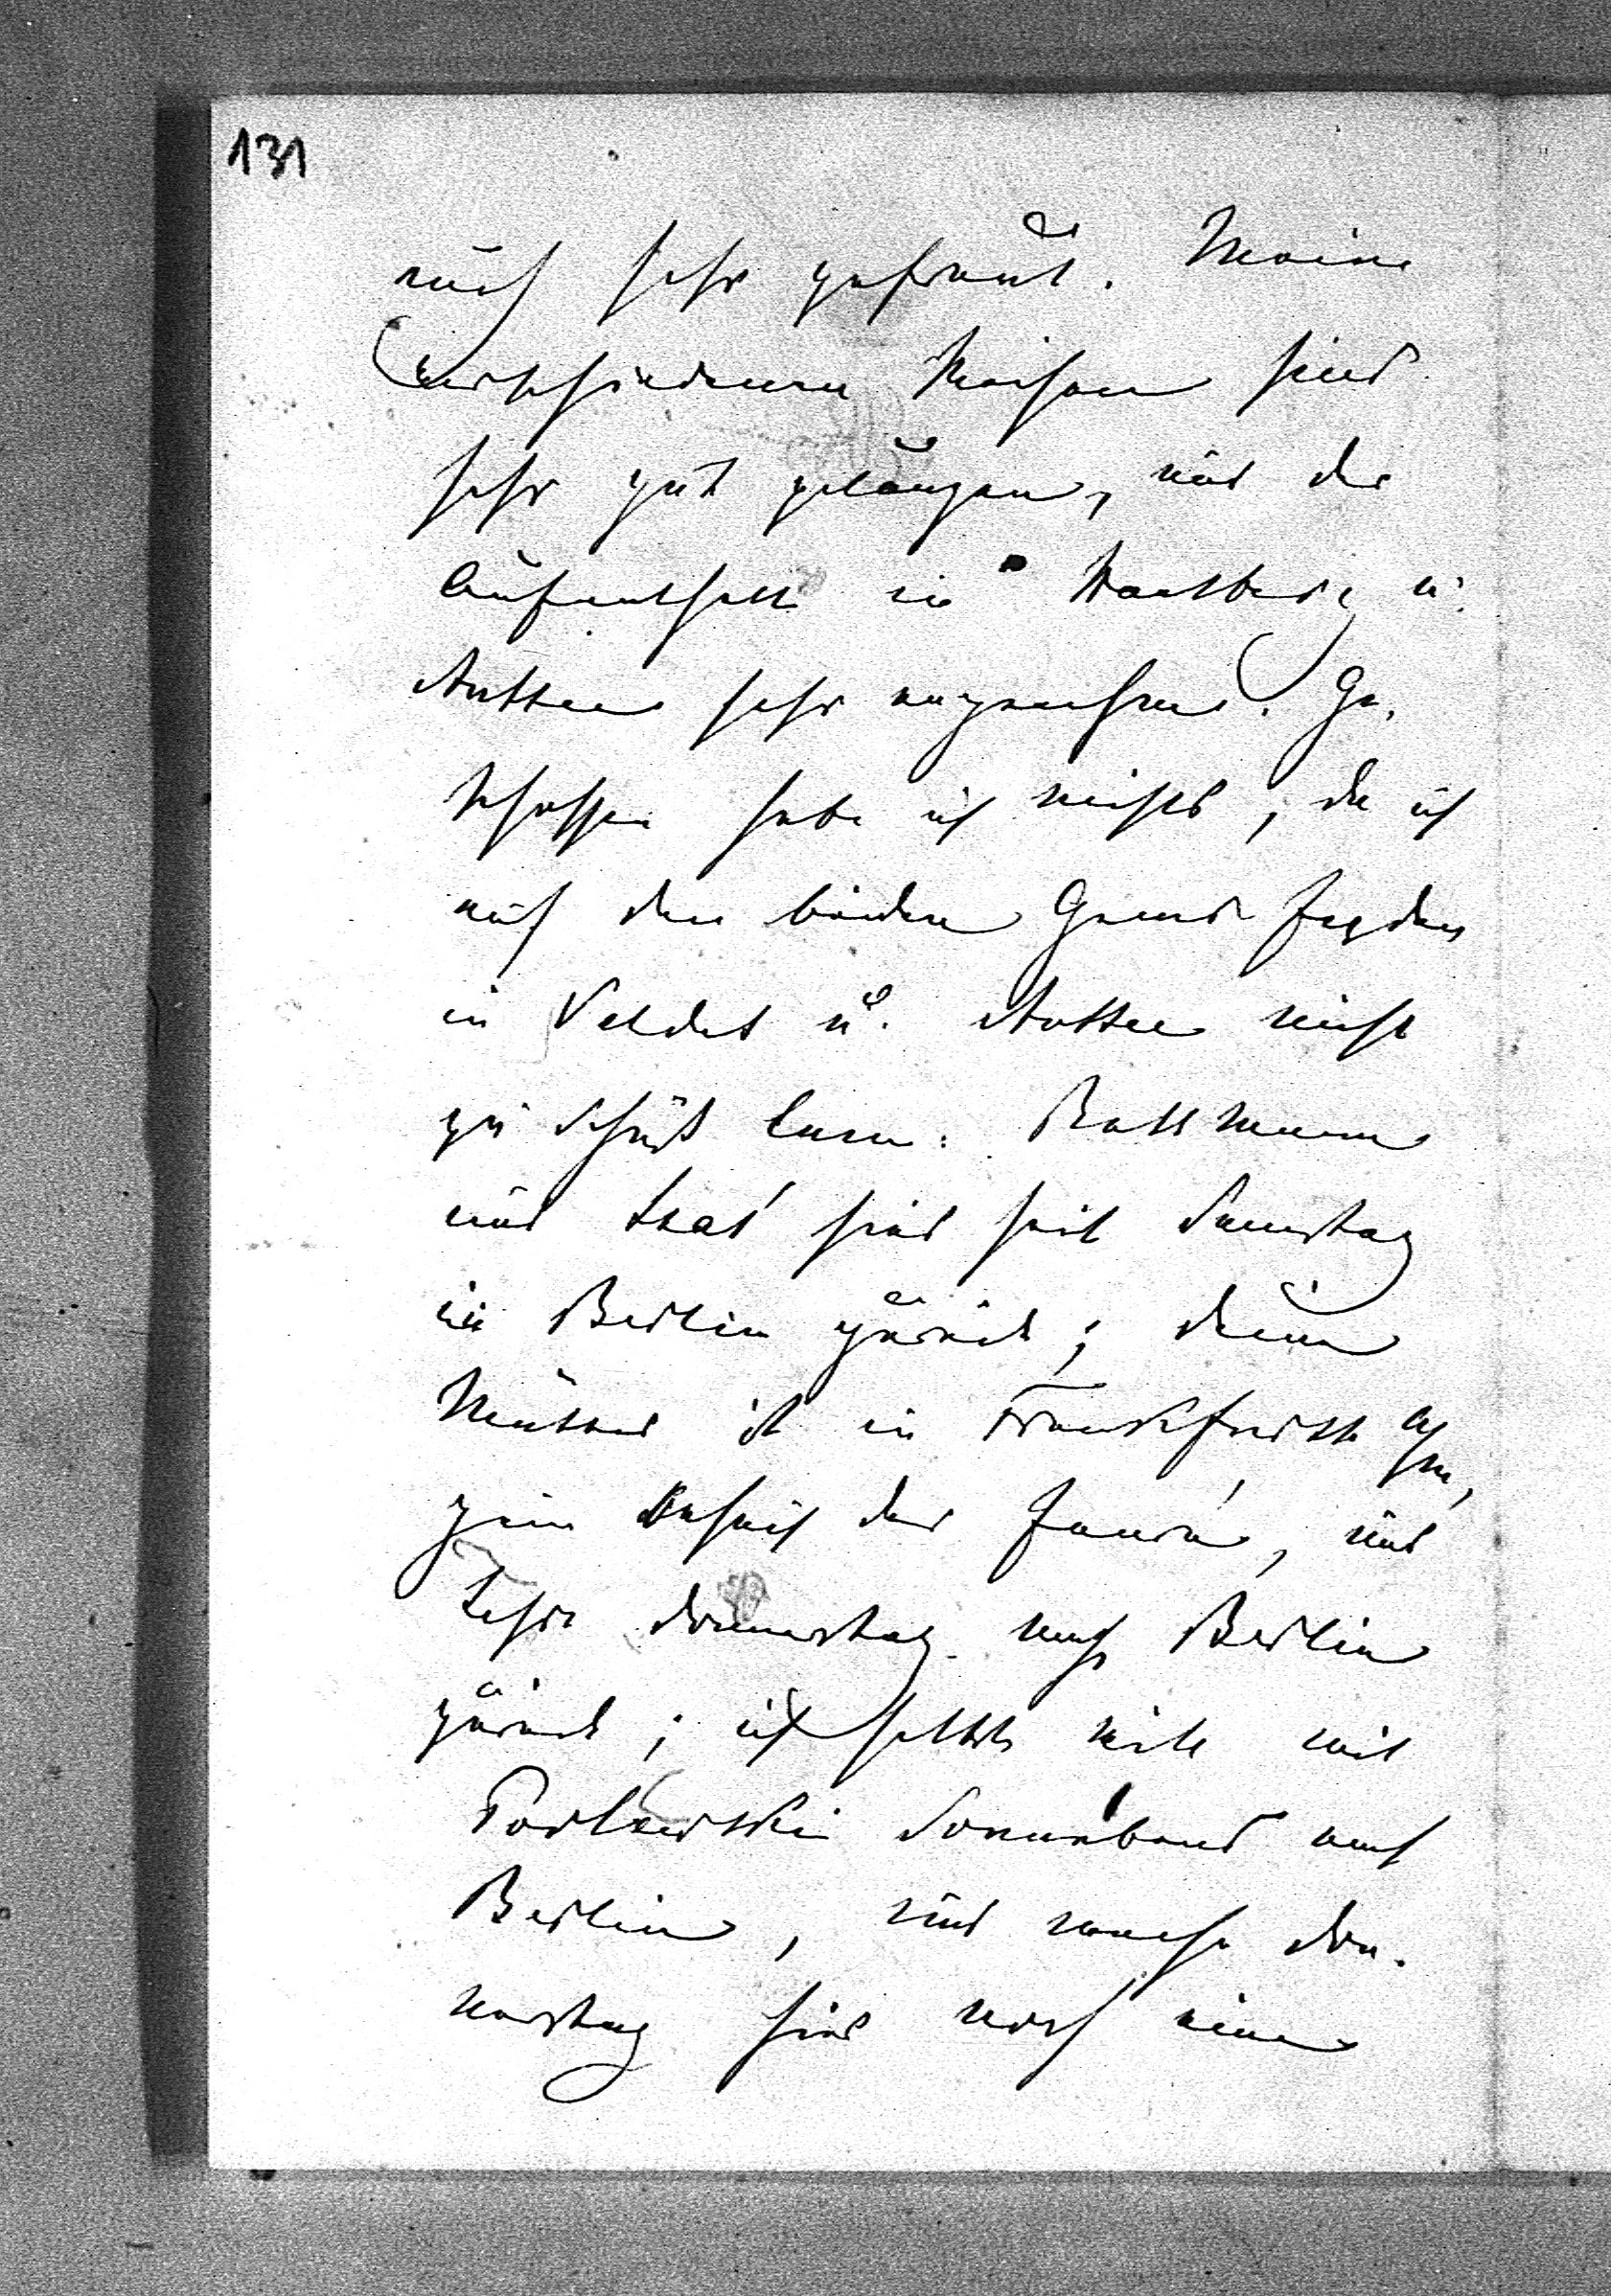 131
mich sehr gefreut. Meine
verschiedenen Reisen sind
sehr gut gelungen, und der
Aufenthalt in Wartburg u.
Aussee sehr angenehm. Ge-
schossen habe ich nichts, da ich
auf den beiden Gems Jagden
in Veldes u. Aussee nicht
zu Schuß kam. Rassmann
und sind seit Samstag
in Berlin zurück; Deine
Mutter ist in Frankfurth a/m,
zum Besuch der und
kehrt Donnerstag nach Berlin
zurück; ich selbst mit
Sonnabend nach
Berlin, und mache Don-
nerstag hier noch eine